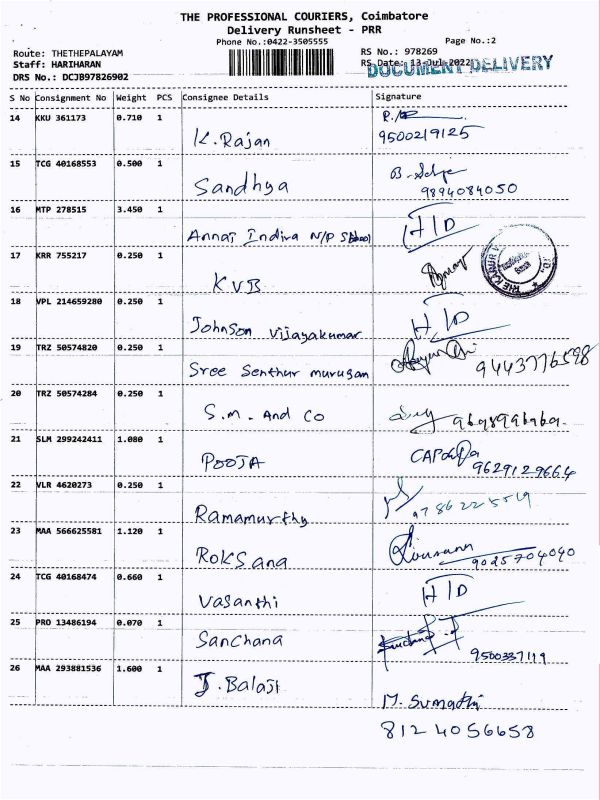 THE PROFESSIONAL COURIERS, Coimbatore
Delivery Runsheet - PRR
Phone No.:0422-3505555
Page No.:2
Route: THETHEPALAYAM
RS No.: 978269
Staff: HARIHARAN
RS Date: 13-Jul-2022
DOCUMENT DELIVERY
DRS No.: DCJB97826902
S No Consignment No Weight PCS Consignee Details Signature
14 KKU 361173 0.710 1 K. Rajan 9500219125
15 TCG 40168553 0.500 1 Sandhya 9894084050
16 MTP 278515 3.450 1 Annai Indira N/P School H/D
17 KRR 755217 0.250 1 KVB
18 VPL 214659280 0.250 1 Johnson Vijayakumar H/D
19 TRZ 50574820 0.250 1 Sree Senthur murugan 9443776598
20 TRZ 50574284 0.250 1 S.M. And CO
21 SLM 299242411 1.080 1 POOJA 9629129664
22 VLR 4620273 0.250 1 Ramamurthy
23 MAA 566625581 1.120 1 Roksana 9025704040
24 TCG 40168474 0.660 1 Vasanthi H/D
25 PRO 13486194 0.070 1 Sanchana 9500337119
26 MAA 293881536 1.600 1 J. Balaji M. Sumathi
8124056658